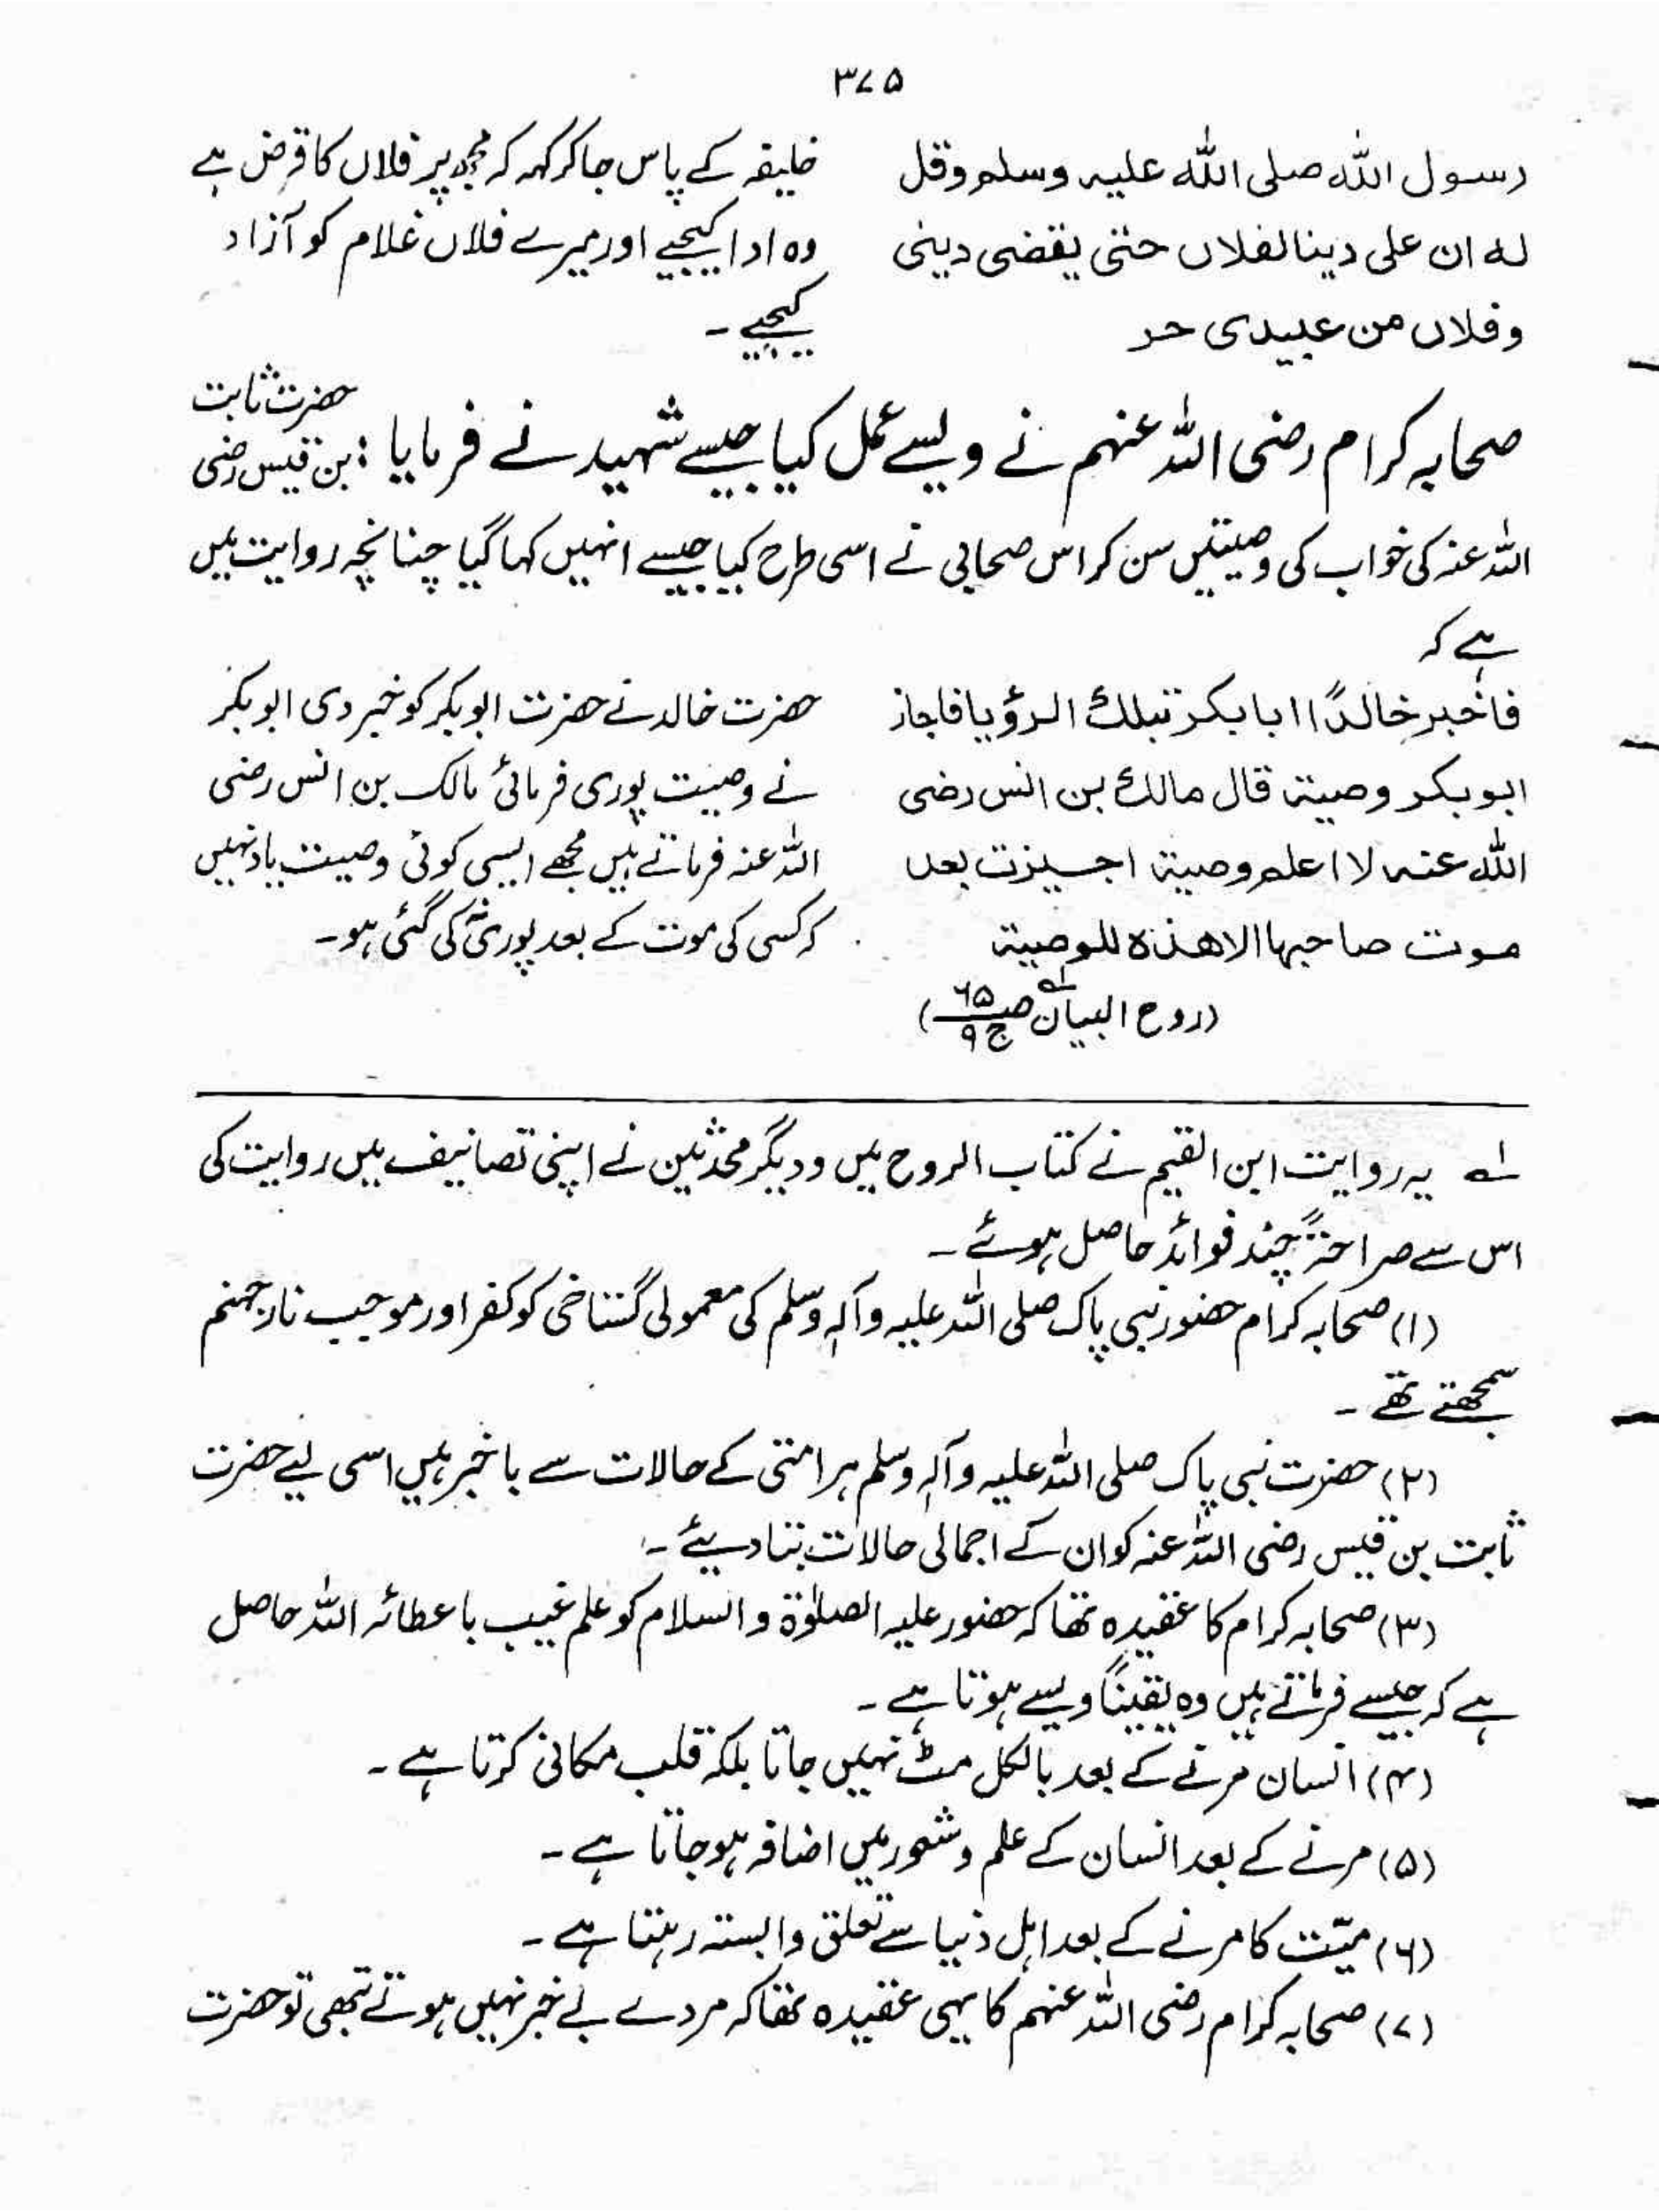 ۳۷۵
رسول اللہ صلی اللہ علیہ وسلم وقل
لہ ان علی دینا لفلاں حتی یقضی دینی
وفلاں من عبیدی حر
خلیفہ کے پاس جا کر کہہ کہ مجھ پر فلاں کا قرض ہے
وہ ادا کیجیے اور میرے فلاں غلام کو آزاد
کیجیے۔
صحابہ کرام رضی اللہ عنہم نے ویسے عمل کیا جیسے شہید نے فرمایا : حضرت ثابت بن قیس رضی
اللہ عنہ کی خواب کی وصیتیں سن کر اس صحابی نے اسی طرح کیا جیسے انہیں کہا گیا چنانچہ روایت میں
ہے کہ
فاخبر خالدًا ابا بکر تبلک الرؤیا فاجاز
ابو بکر وصیتہ قال مالک بن انس رضی
اللہ عنہ لا اعلم وصیتہ اجیزت بعد
موت صاحبہا الا ھذہ للوصیۃ
(روح البیان ص ۶۵ ج ۹) لہ
حضرت خالد نے حضرت ابوبکر کو خبر دی ابوبکر
نے وصیت پوری فرمائی مالک بن انس رضی
اللہ عنہ فرماتے ہیں مجھے ایسی کوئی وصیت یاد نہیں
کہ کسی کی موت کے بعد پوری کی گئی ہو۔
لہ یہ روایت ابن القیم نے کتاب الروح میں و دیگر محدثین نے اپنی تصانیف میں روایت کی
اس سے صراحتہً چند فوائد حاصل ہوئے۔
(۱) صحابہ کرام حضور نبی پاک صلی اللہ علیہ وآلہ وسلم کی معمولی گستاخی کو کفر اور موجب نار جہنم
سمجھتے تھے۔
(۲) حضرت نبی پاک صلی اللہ علیہ وآلہ وسلم ہر امتی کے حالات سے باخبر ہیں اسی لیے حضرت
ثابت بن قیس رضی اللہ عنہ کو ان کے اجمالی حالات بتا دیئے۔
(۳) صحابہ کرام کا عقیدہ تھا کہ حضور علیہ الصلوٰۃ والسلام کو علم غیب باعطائہ اللہ حاصل
ہے کہ جیسے فرماتے ہیں وہ یقیناً ویسے ہوتا ہے۔
(۴) انسان مرنے کے بعد بالکل مٹ نہیں جاتا بلکہ قلب مکانی کرتا ہے۔
(۵) مرنے کے بعد انسان کے علم و شعور میں اضافہ ہو جاتا ہے۔
(۶) میّت کا مرنے کے بعد اہل دنیا سے تعلق وابستہ رہتا ہے۔
(۷) صحابہ کرام رضی اللہ عنہم کا یہی عقیدہ تھا کہ مردے بے خبر نہیں ہوتے تبھی تو حضرت